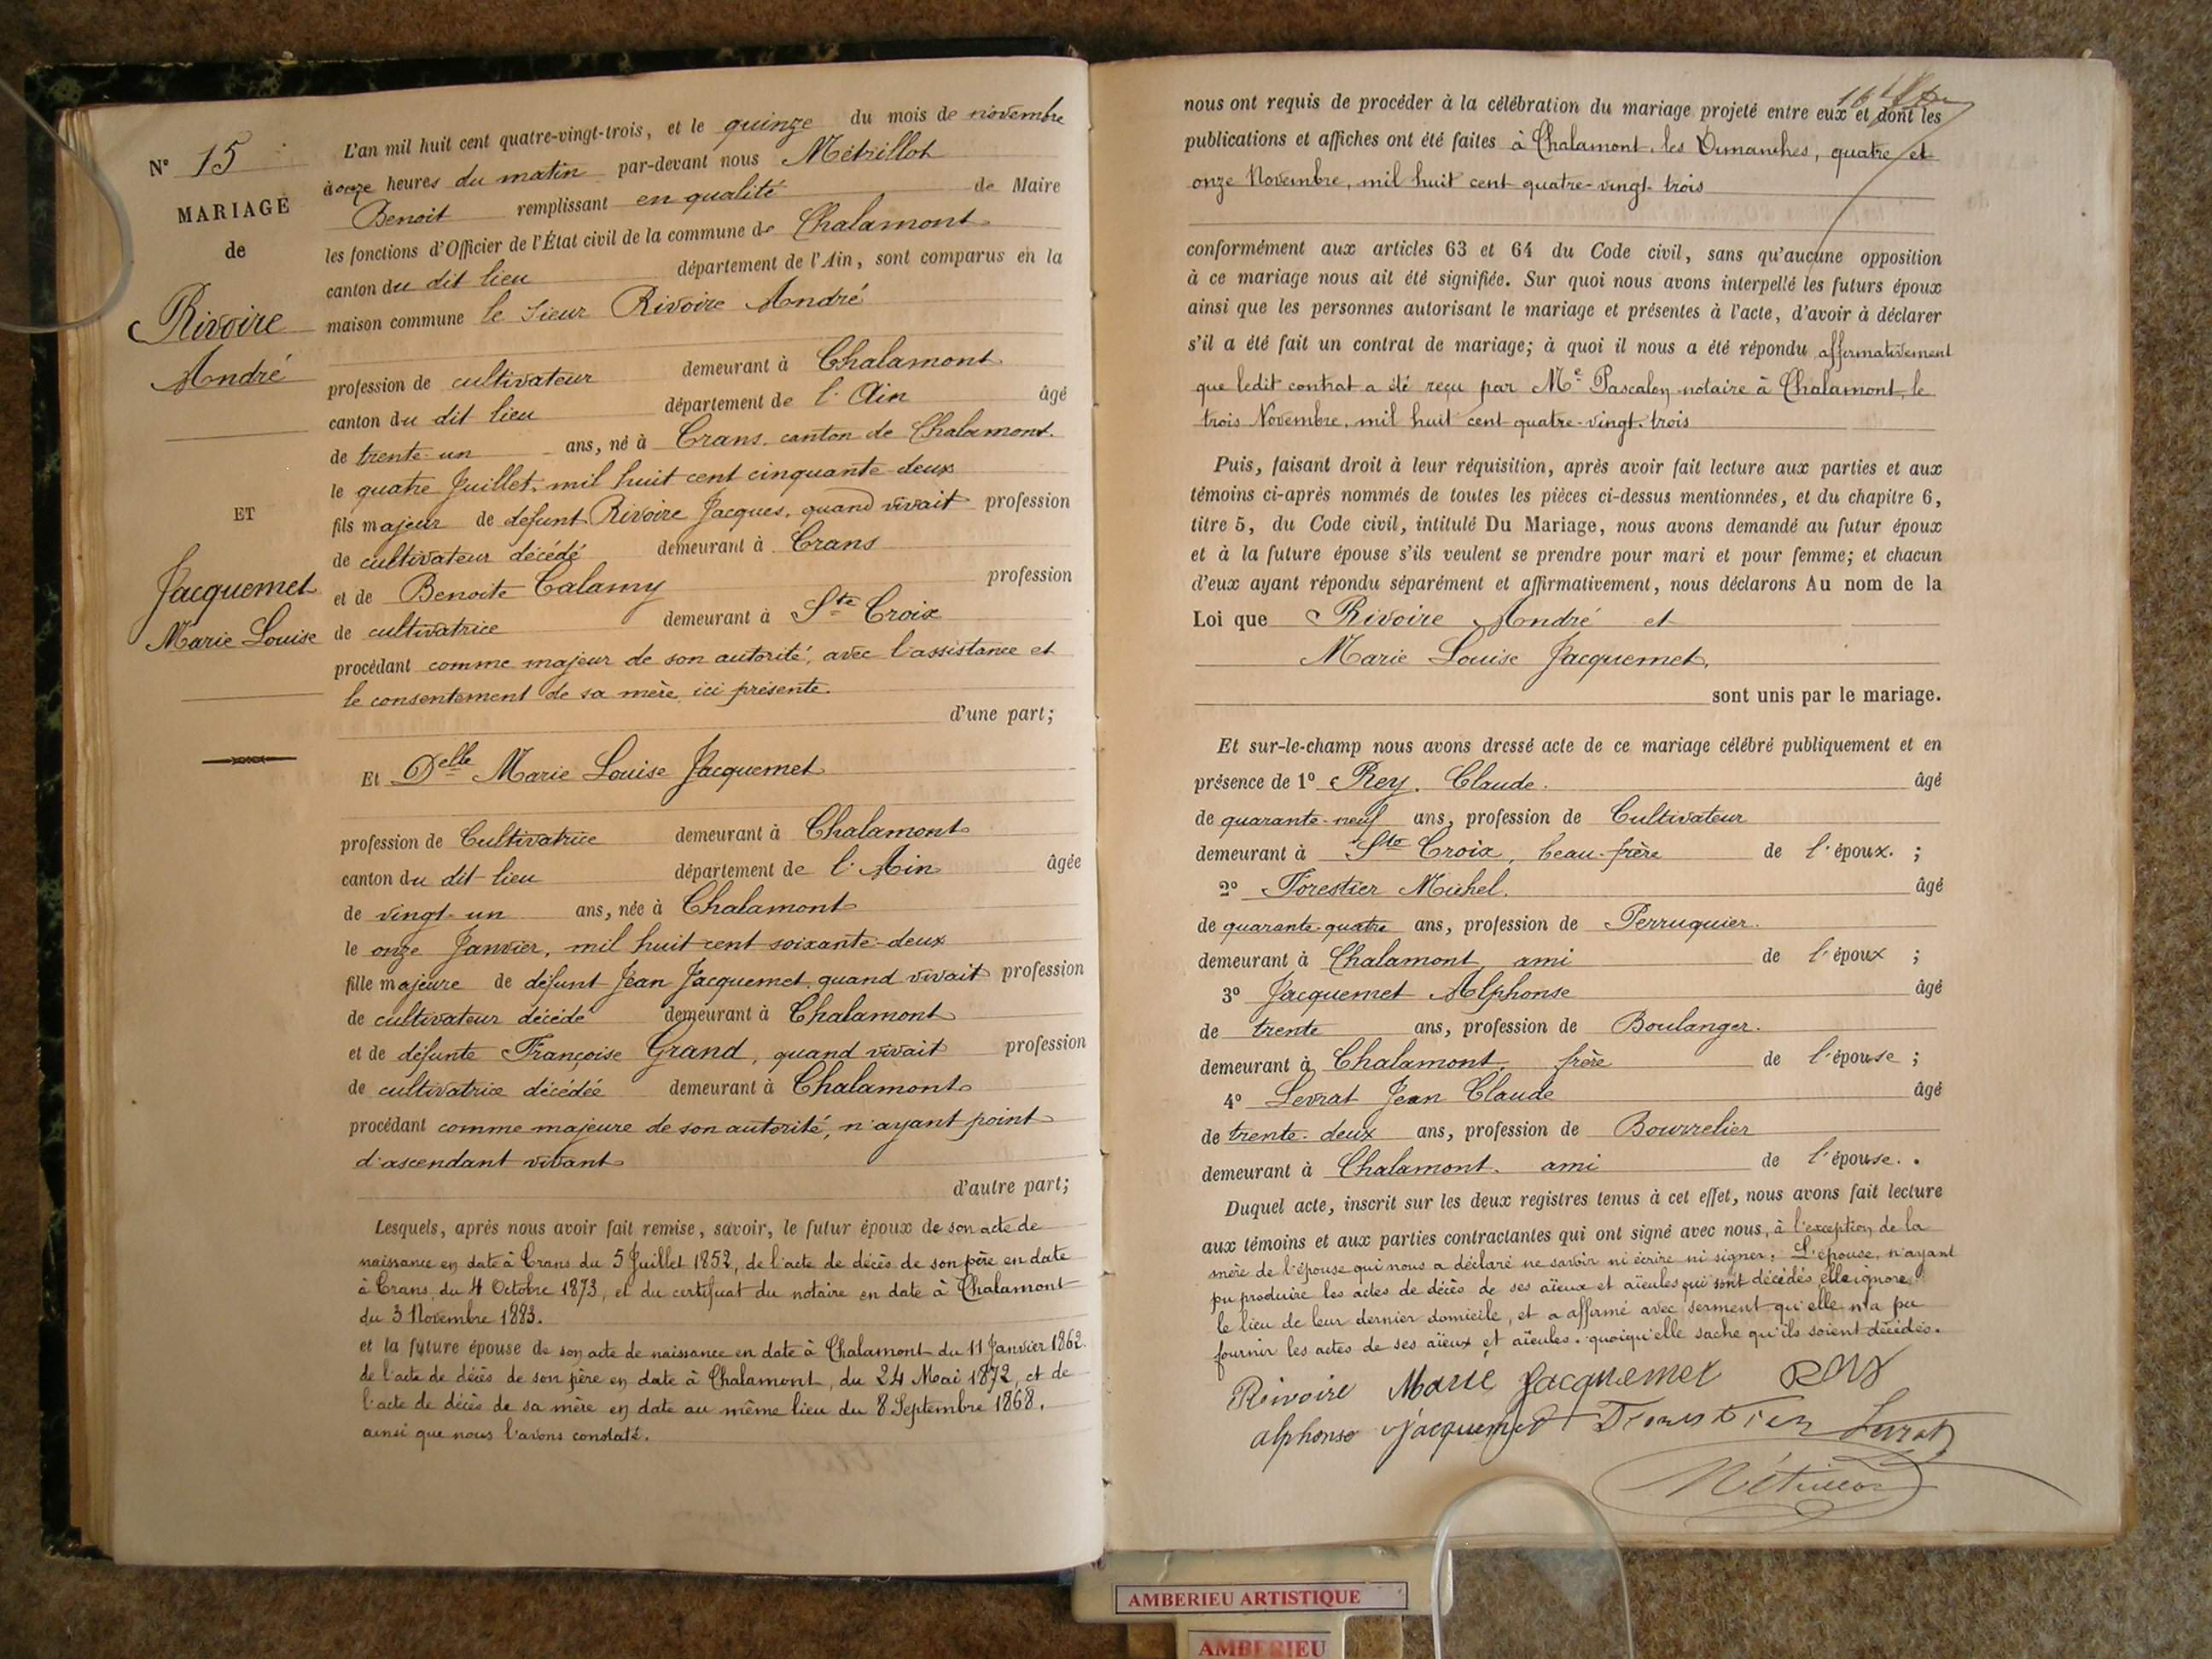 N° 15
MARIAGE
de
Rivoire
André
ET
Jacquemet
Marie Louise
L'an mil huit cent quatre-vingt-trois, et le quinze du mois de novembre
à onze heures du matin par-devant nous Métrillot
Benoit remplissant en qualité de Maire
les fonctions d'Officier de l'État civil de la commune de Chalamont
canton du dit lieu département de l'Ain, sont comparus en la
maison commune le Sieur Rivoire André
profession de cultivateur demeurant à Chalamont
canton du dit lieu département de l'Ain âgé
de trente-un ans, né à Crans, canton de Chalamont.
le quatre Juillet, mil huit cent cinquante-deux
fils majeur de défunt Rivoire Jacques, quand vivait profession
de cultivateur décédé demeurant à Crans
et de Benoite Calamy profession
de cultivatrice demeurant à Ste Croix
procédant comme majeur de son autorité, avec l'assistance et
le consentement de sa mère, ici présente.
d'une part;
Et Delle Marie Louise Jacquemet
profession de Cultivatrice demeurant à Chalamont
canton du dit lieu département de l'Ain âgée
de vingt-un ans, née à Chalamont
le onze Janvier, mil huit cent soixante-deux
fille majeure de défunt Jean Jacquemet, quand vivait profession
de cultivateur décédé demeurant à Chalamont
et de défunte Françoise Grand, quand vivait profession
de cultivatrice décédée demeurant à Chalamont
procédant comme majeure de son autorité, n'ayant point
d'ascendant vivant
d'autre part;
Lesquels, après nous avoir fait remise, savoir, le futur époux de son acte de
naissance en date à Crans du 5 Juillet 1852, de l'acte de décès de son père en date
à Crans, du 4 Octobre 1873, et du certificat du notaire en date à Chalamont
du 3 Novembre 1883.
et la future épouse de son acte de naissance en date à Chalamont du 11 Janvier 1862.
de l'acte de décès de son père en date à Chalamont, du 24 Mai 1872, et de
l'acte de décès de sa mère en date au même lieu du 8 Septembre 1868.
ainsi que nous l'avons constaté.
nous ont requis de procéder à la célébration du mariage projeté entre eux et dont les
publications et affiches ont été faites à Chalamont, les Dimanches, quatre et
onze Novembre, mil huit cent quatre-vingt-trois
conformément aux articles 63 et 64 du Code civil, sans qu'aucune opposition
à ce mariage nous ait été signifiée. Sur quoi nous avons interpellé les futurs époux
ainsi que les personnes autorisant le mariage et présentes à l'acte, d'avoir à déclarer
s'il a été fait un contrat de mariage; à quoi il nous a été répondu affirmativement
que ledit contrat a été reçu par Me Pascalon notaire à Chalamont, le
trois Novembre, mil huit cent quatre-vingt-trois
Puis, faisant droit à leur réquisition, après avoir fait lecture aux parties et aux
témoins ci-après nommés de toutes les pièces ci-dessus mentionnées, et du chapitre 6,
titre 5, du Code civil, intitulé Du Mariage, nous avons demandé au futur époux
et à la future épouse s'ils veulent se prendre pour mari et pour femme; et chacun
d'eux ayant répondu séparément et affirmativement, nous déclarons Au nom de la
Loi que Rivoire André et
Marie Louise Jacquemet,
sont unis par le mariage.
Et sur-le-champ nous avons dressé acte de ce mariage célébré publiquement et en
présence de 1° Rey. Claude. âgé
de quarante-neuf ans, profession de Cultivateur
demeurant à Ste Croix, beau-frère de l'époux. ;
2° Forestier Michel. âgé
de quarante-quatre ans, profession de Perruquier.
demeurant à Chalamont, ami de l'époux ;
3° Jacquemet Alphonse âgé
de trente ans, profession de Boulanger.
demeurant à Chalamont, frère de l'épouse ;
4° Levrat Jean Claude âgé
de trente-deux ans, profession de Bourrelier
demeurant à Chalamont. ami de l'épouse. .
Duquel acte, inscrit sur les deux registres tenus à cet effet, nous avons fait lecture
aux témoins et aux parties contractantes qui ont signé avec nous, à l'exception de la
mère de l'épouse qui nous a déclaré ne savoir ni écrire ni signer. L'épouse, n'ayant
pu produire les actes de décès de ses aïeux et aïeules qui sont décédés, elle ignore
le lieu de leur dernier domicile, et a affirmé avec serment qu'elle n'a pu
fournir les actes de ses aïeux et aïeules. quoiqu'elle sache qu'ils soient décédés.
Rivoire Marie Jacquemet
alphonse jacquemet Levrat
AMBERIEU ARTISTIQUE
AMBERIEU